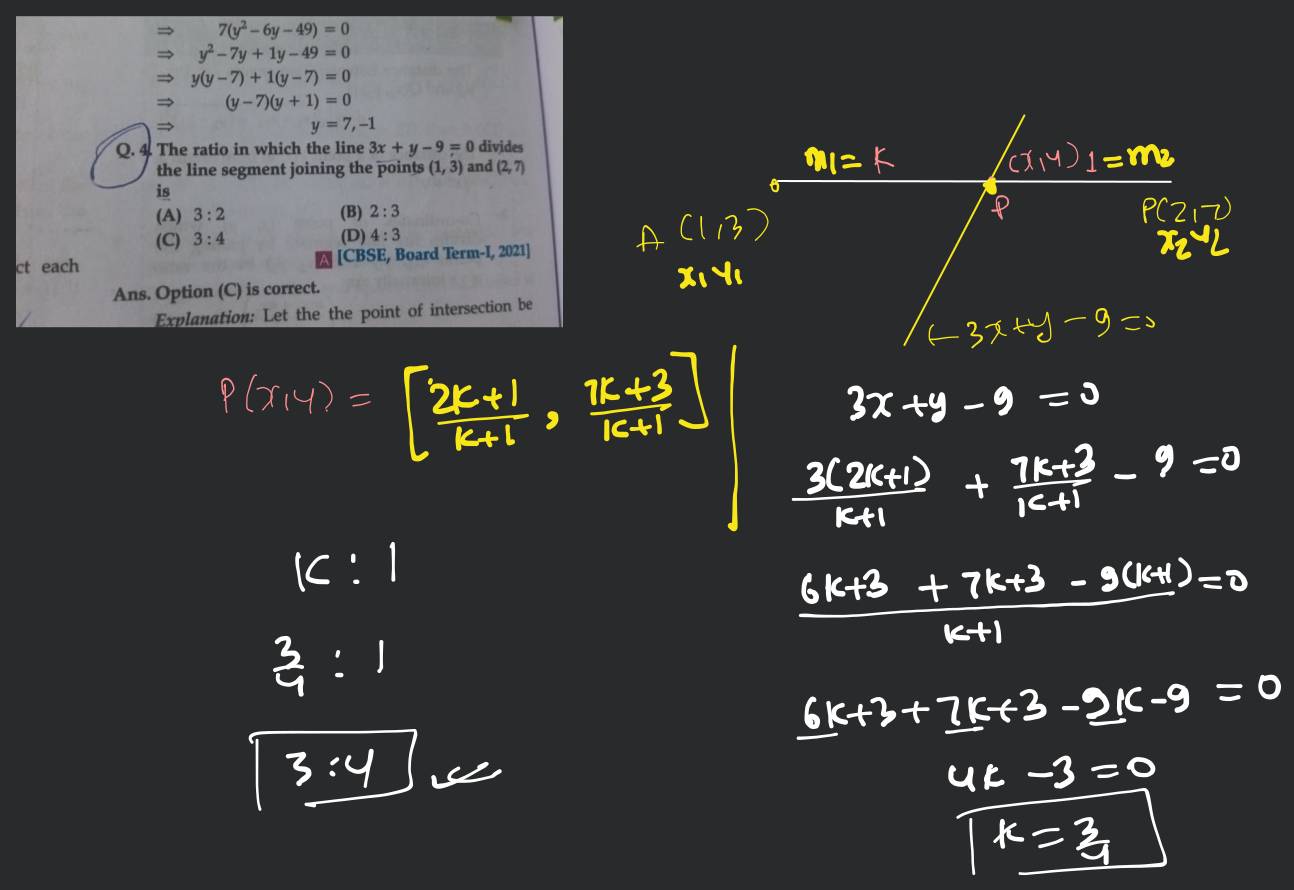 ⇒ 7(y² – 6y – 49) = 0
⇒ y² – 7y + 1y – 49 = 0
⇒ y(y – 7) + 1(y – 7) = 0
⇒ (y – 7)(y + 1) = 0
⇒ y = 7, –1
Q. 4. The ratio in which the line 3x + y – 9 = 0 divides
the line segment joining the points (1, 3) and (2, 7)
is
(A) 3 : 2 (B) 2 : 3
(C) 3 : 4 (D) 4 : 3
A [CBSE, Board Term-I, 2021]
ct each
Ans. Option (C) is correct.
Explanation: Let the the point of intersection be
m1 = K (x,y) 1 = m2
P
A (1,3) P(2,7)
x1 y1 x2 y2
← 3x+y-9=0
P(x,y) = [2K+1/K+1 , 7K+3/K+1]
3x+y-9=0
3(2K+1)/K+1 + 7K+3/K+1 - 9 = 0
6K+3 + 7K+3 - 9(K+1)/K+1 = 0
6K+3+7K+3-9K-9 = 0
4K-3=0
K=3/4
K : 1
3/4 : 1
3:4